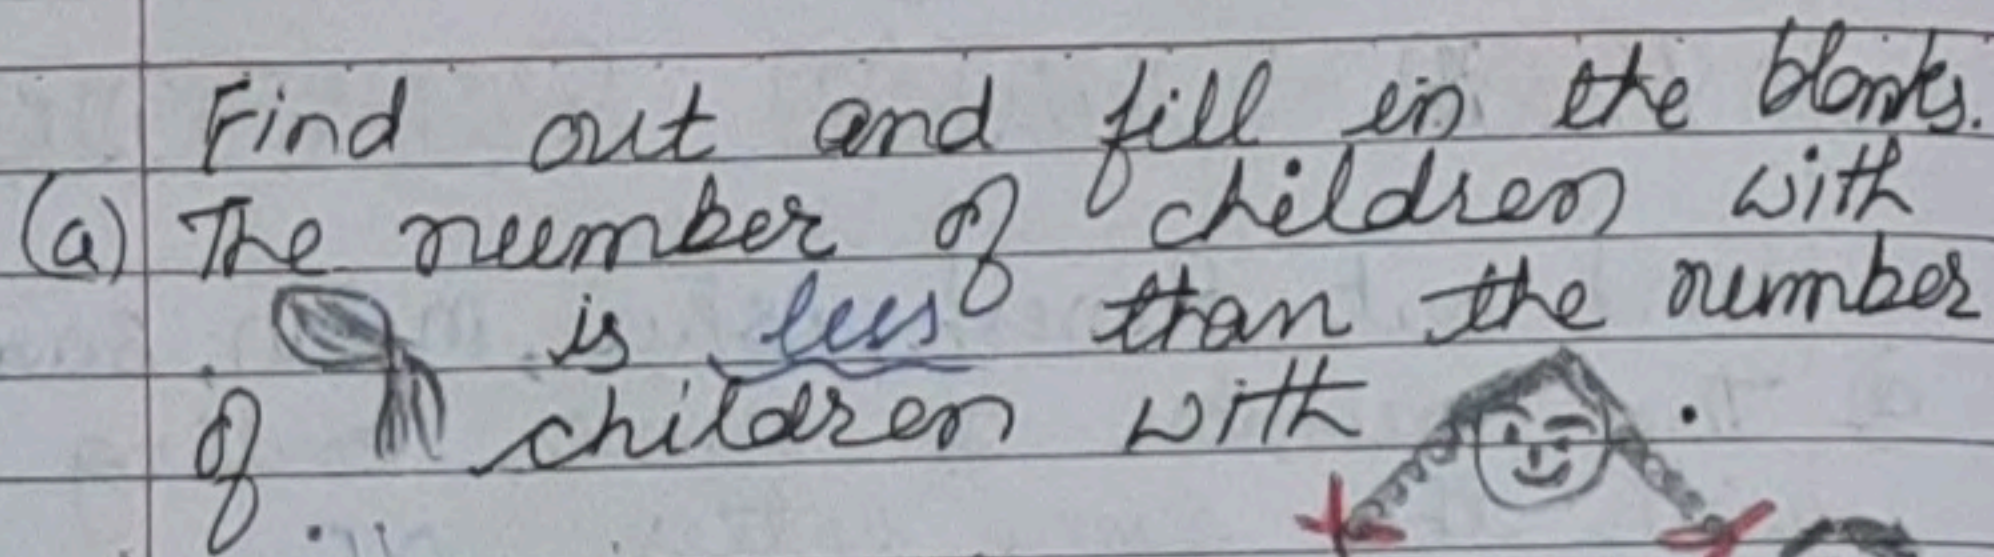 Find out and fill in the blanks.
(a) The number of children with
is less than the number
of children with .